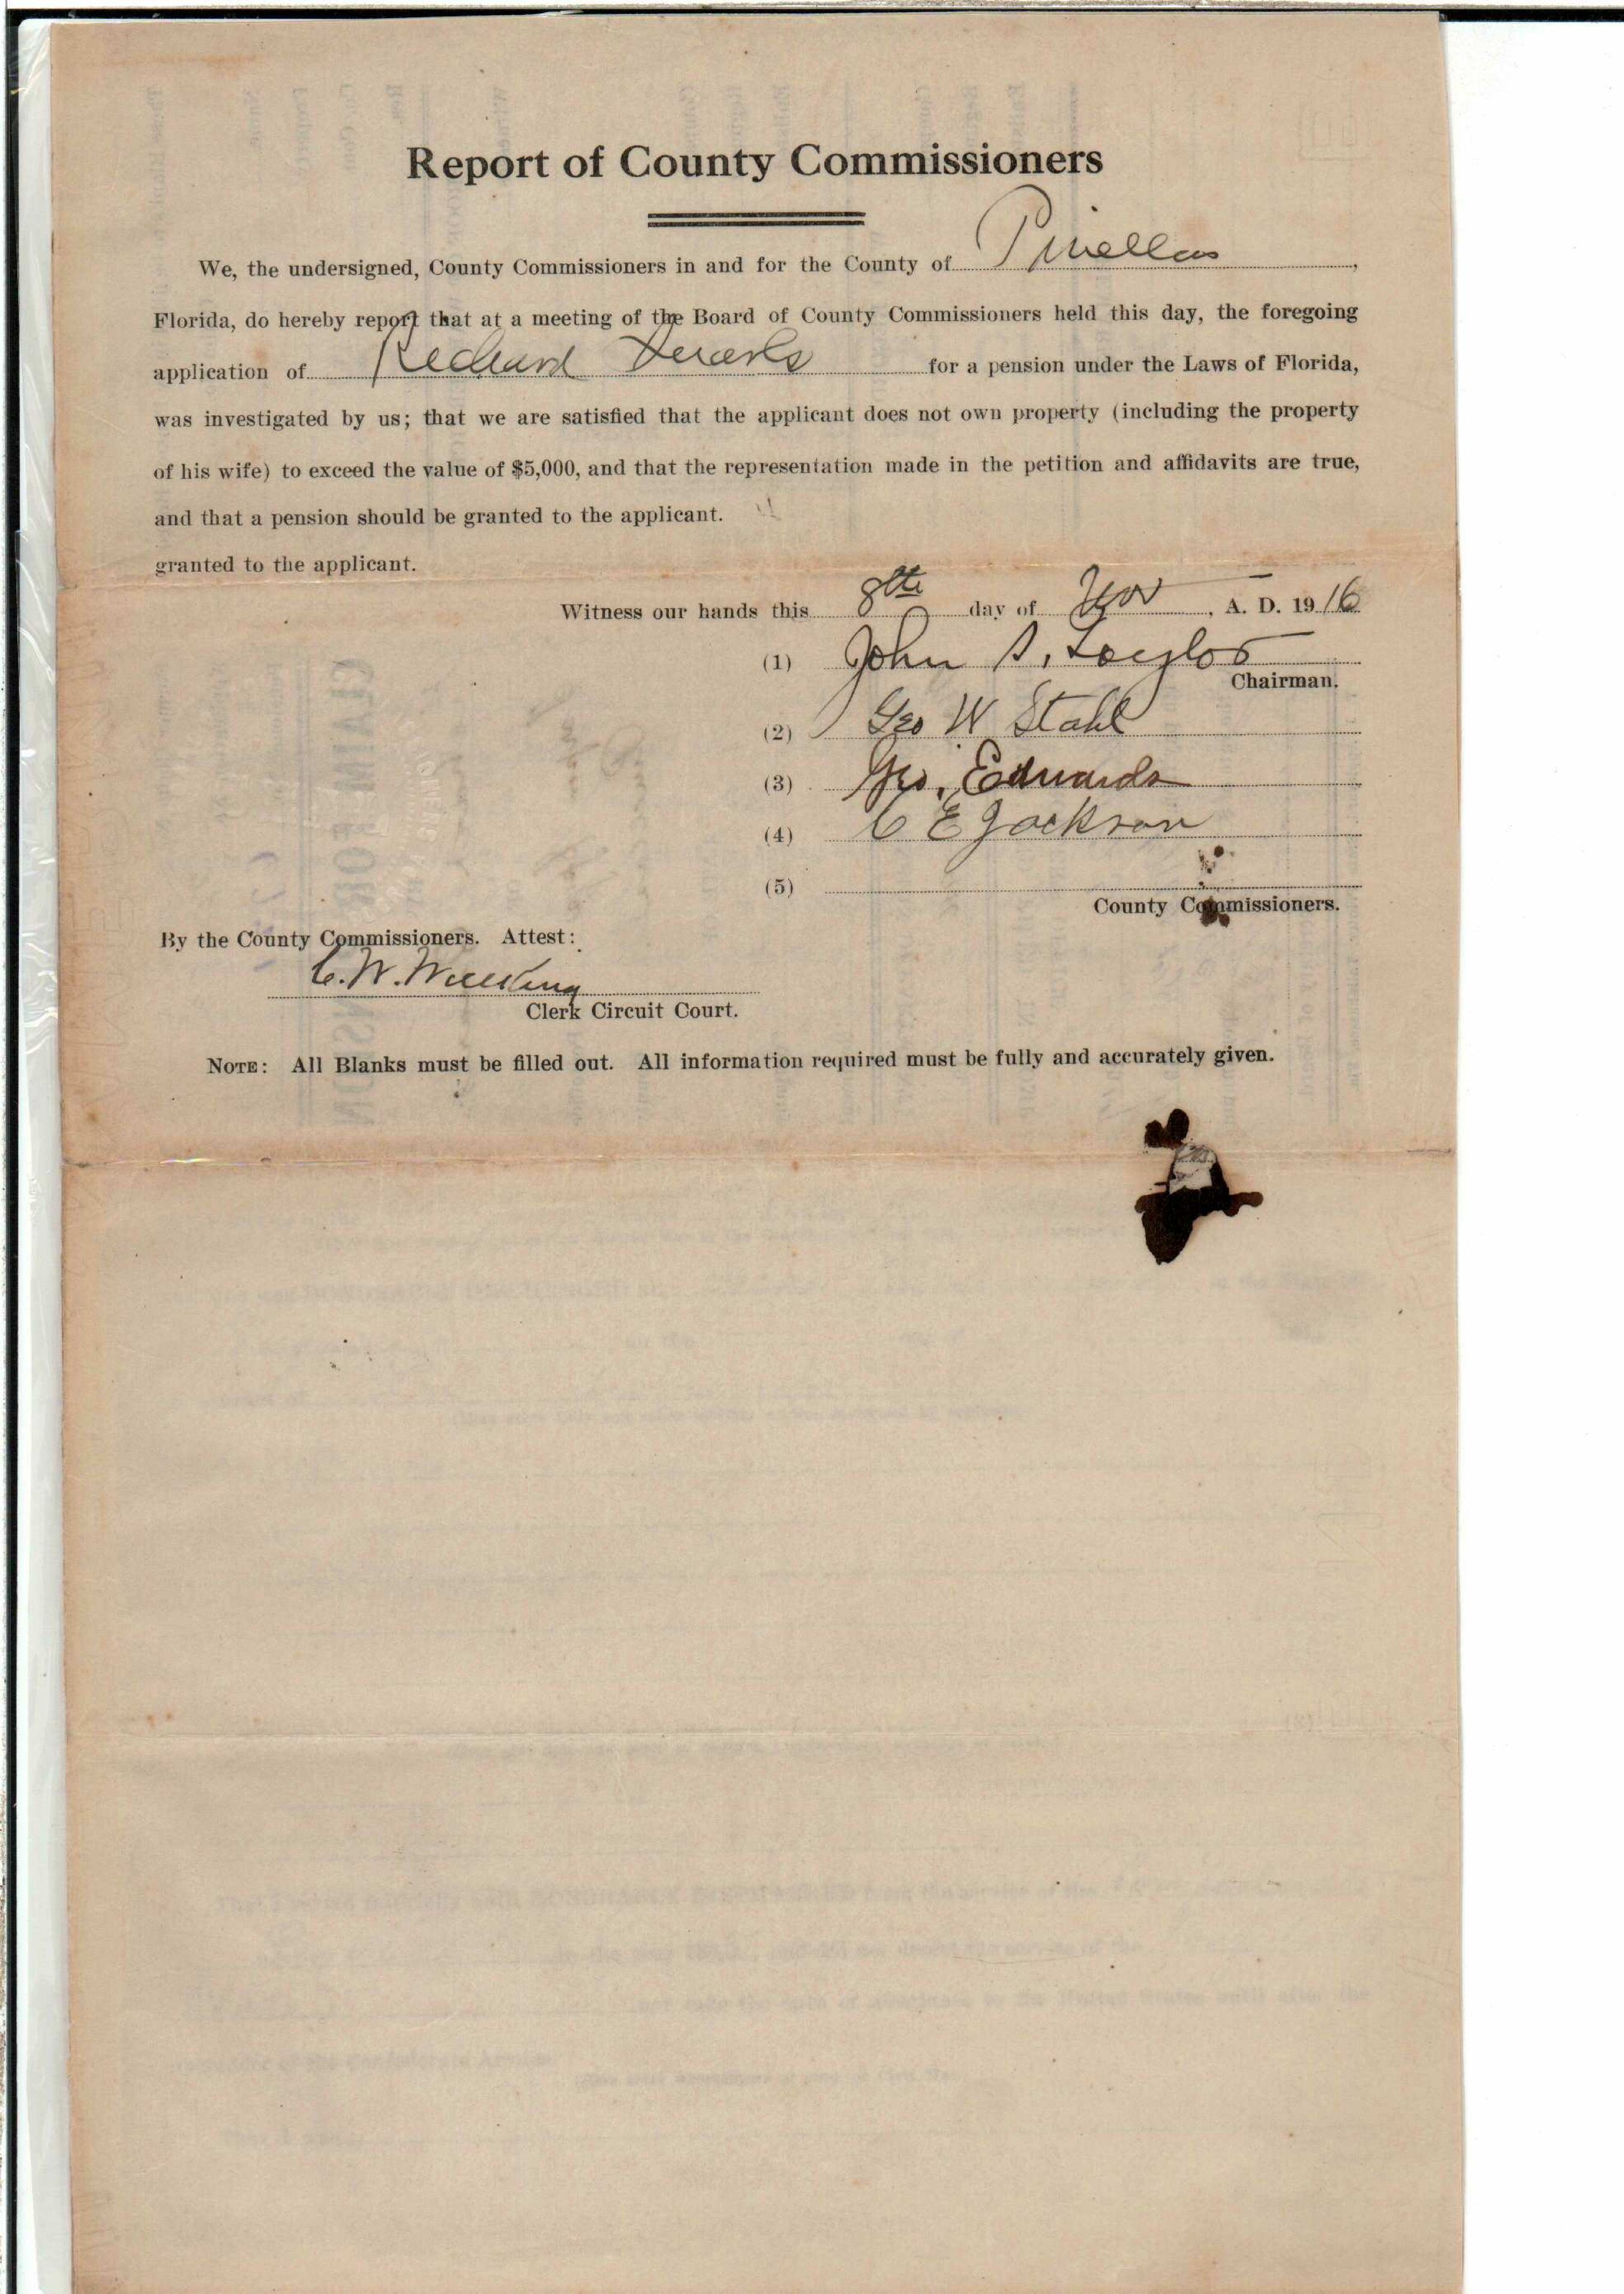 Report of County Commissioners
We, the undersigned, County Commissioners in and for the County of Pinellas,
Florida, do hereby report that at a meeting of the Board of County Commissioners held this day, the foregoing
application of Richard for a pension under the Laws of Florida,
was investigated by us; that we are satisfied that the applicant does not own property (including the property
of his wife) to exceed the value of $5,000, and that the representation made in the petition and affidavits are true,
and that a pension should be granted to the applicant.
granted to the applicant.
Witness our hands this 8th day of Nov, A. D. 1916
(1) John S. Taylor
Chairman.
(2) Geo W Stahl
(3) Geo. Edwards
(4) C E Jackson
(5)
County Commissioners.
By the County Commissioners. Attest:
C. W. Wiecking
Clerk Circuit Court.
NOTE: All Blanks must be filled out. All information required must be fully and accurately given.